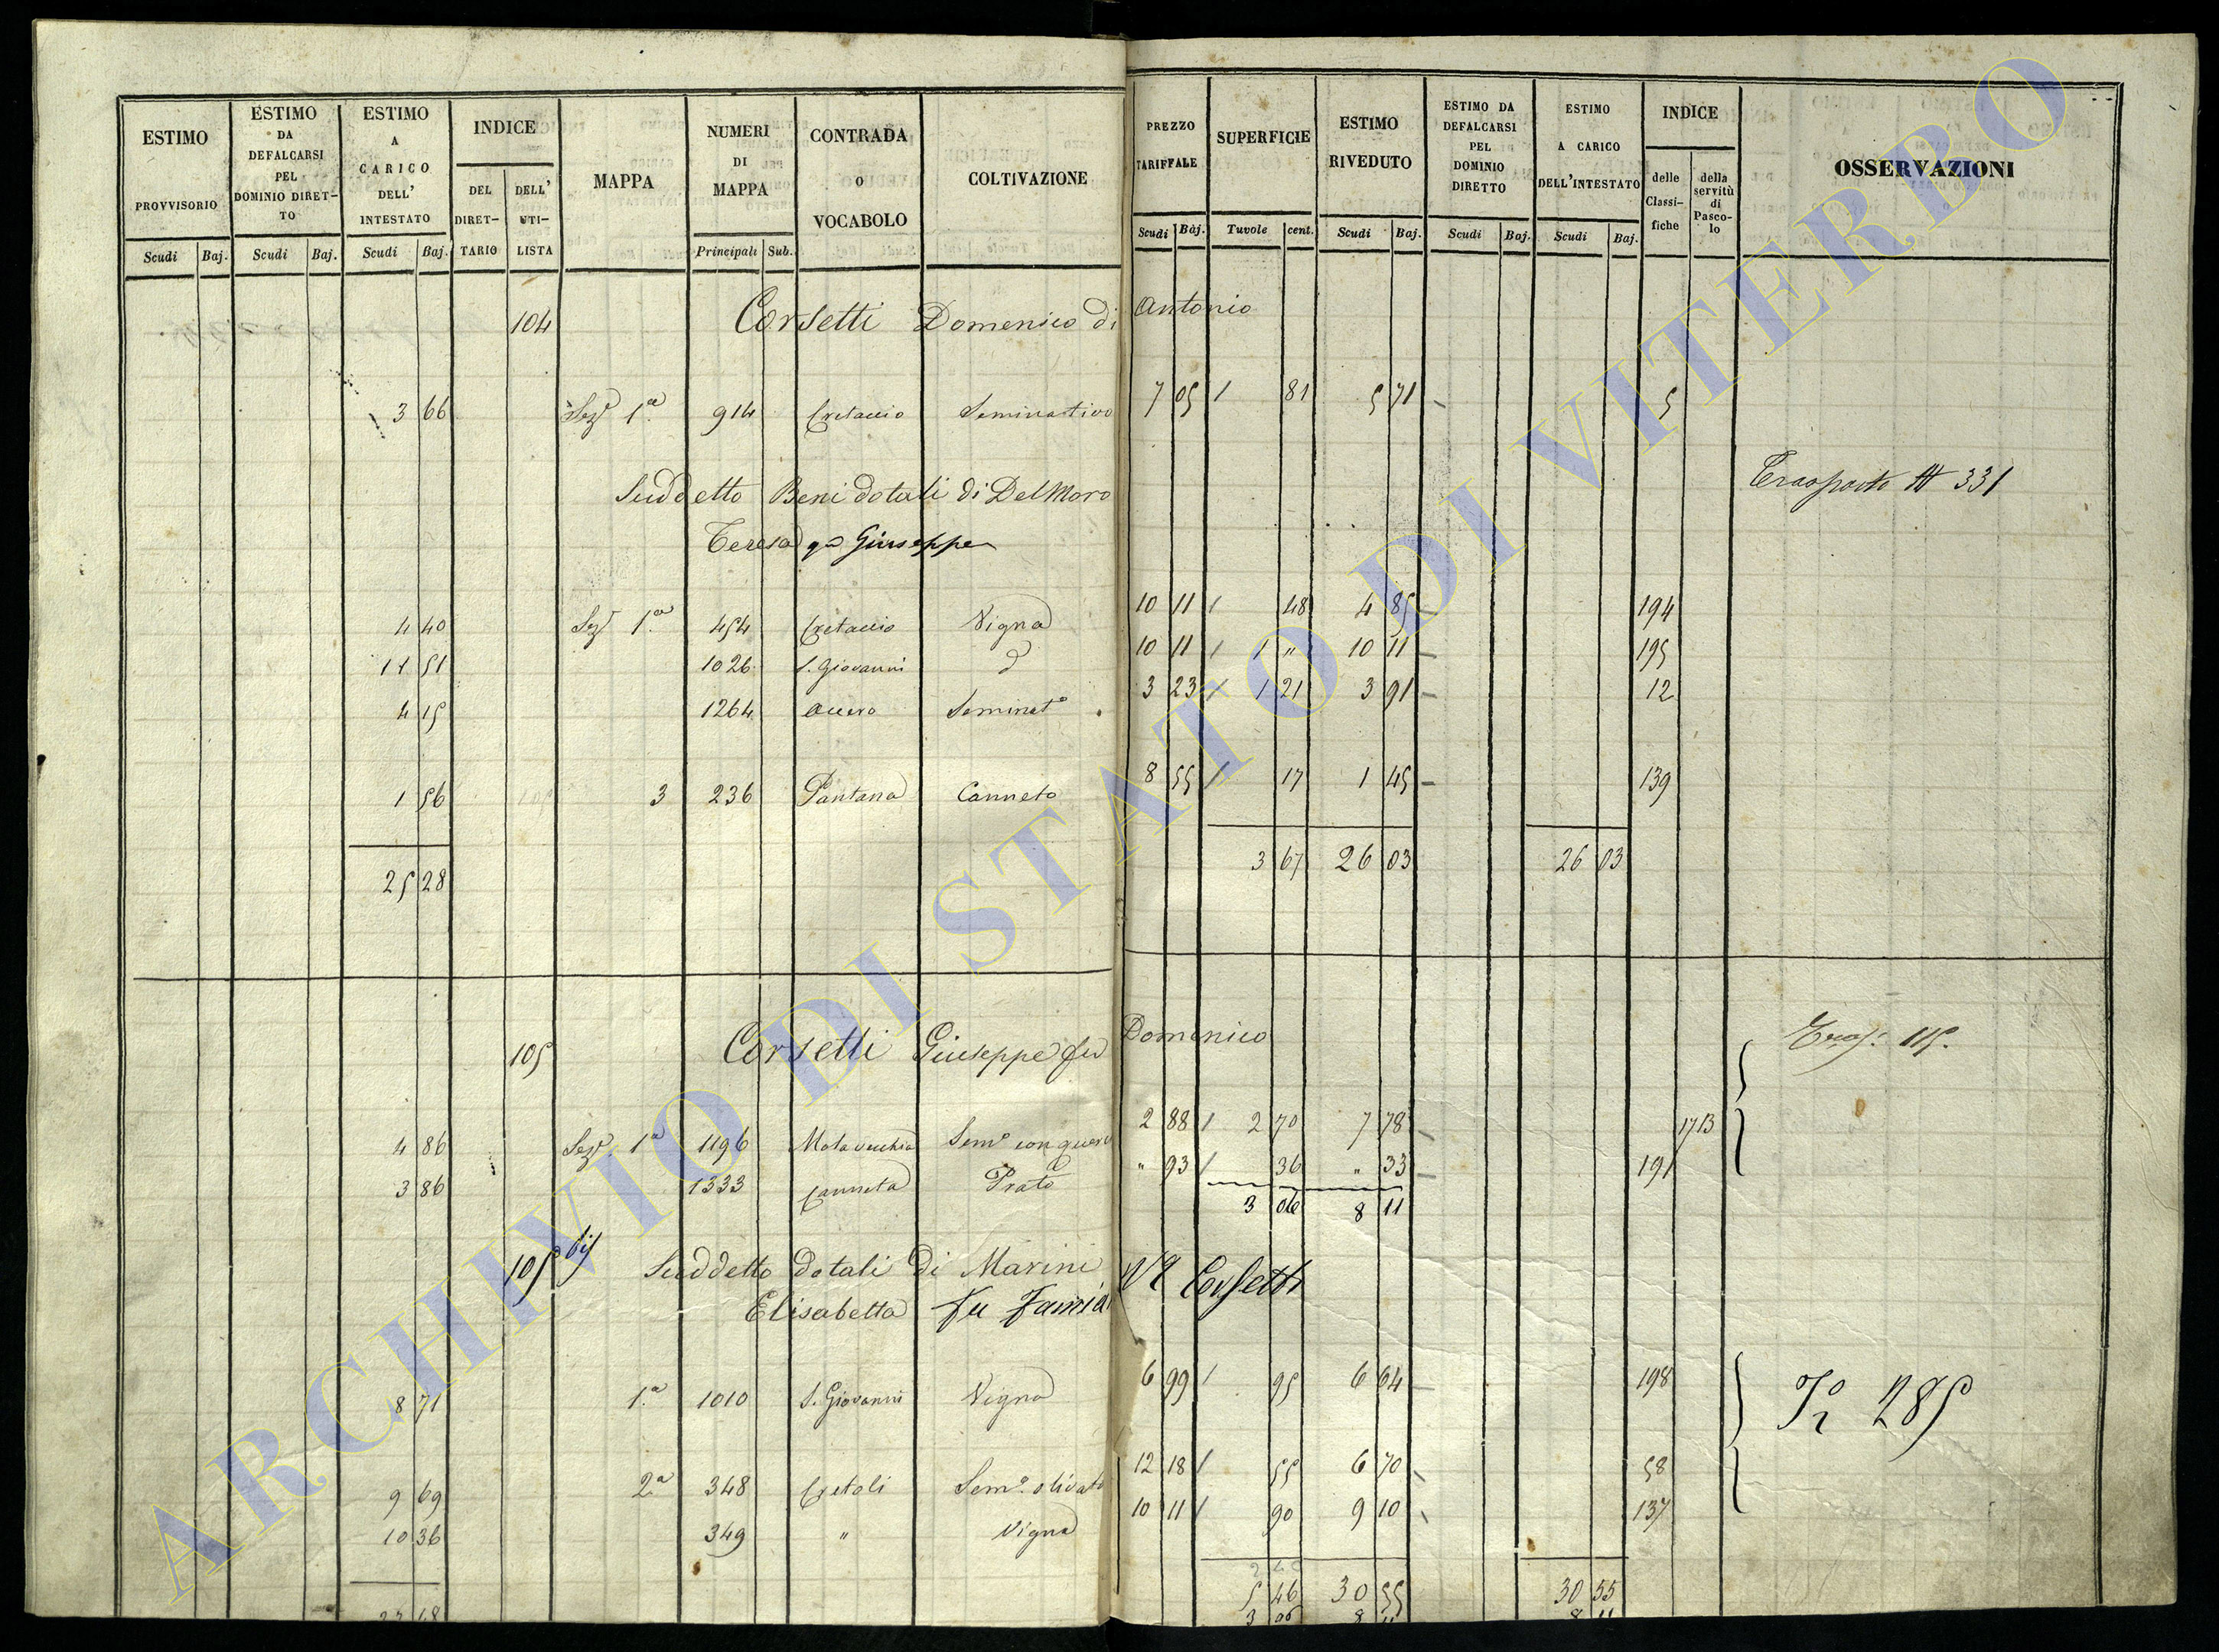 ESTIMO PROVVISORIO Scudi Baj.
ESTIMO DA DEFALCARSI PEL DOMINIO DIRET-TO Scudi Baj.
ESTIMO A CARICO DELL' INTESTATO Scudi Baj.
INDICE DEL DIRET-TARIO DELL' UTI-LISTA
MAPPA
NUMERI DI MAPPA Principali Sub.
CONTRADA O VOCABOLO
COLTIVAZIONE
PREZZO TARIFFALE Scudi Baj.
SUPERFICIE Tavole cent.
ESTIMO RIVEDUTO Scudi Baj.
ESTIMO DA DEFALCARSI PEL DOMINIO DIRETTO Scudi Baj.
ESTIMO A CARICO DELL'INTESTATO Scudi Baj.
INDICE delle Classi-fiche della servitù di Pasco-lo
OSSERVAZIONI
104 Corsetti Domenico di Antonio
3 66 Sez 1a 914 Cretaccio Seminativo 7 05 / 81 5 71 5
Suddetto Beni dotali di Del Moro Trasporto 331
Teresa qm Giuseppe
4 40 Sez 1a 454 Cretaccio Vigna 10 11 / 48 4 85 194
11 51 1026 S. Giovanni d 10 11 / 1 " 10 11 195
4 15 1264 Seminato 3 23 / 1 21 3 91 12
1 56 3 236 Pantana Canneto 8 55 / 17 1 45 139
25 28 3 67 26 03 26 03
105 Corsetti Giuseppe fu Domenico Tras: 115.
4 86 Sez 1a 1196 Mola vecchia Semo con querc 2 88 / 2 70 7 78 17 13
3 86 1333 Canneta Prato " 93 / 36 " 33 191
3 06 8 11
105 bis Suddetto dotali di Marini Corsetti
Elisabetta fu
8 71 1.a 1010 S. Giovanni Vigna 6 99 / 95 6 64 198 To 285
9 69 2a 348 Cretoli Semo. olivato 12 18 / 55 6 70 58
10 36 349 " Vigna 10 11 / 90 9 10 137
5 46 30 55 30 55
3 06 8 11 8 11
ARCHIVIO DI STATO DI VITERBO